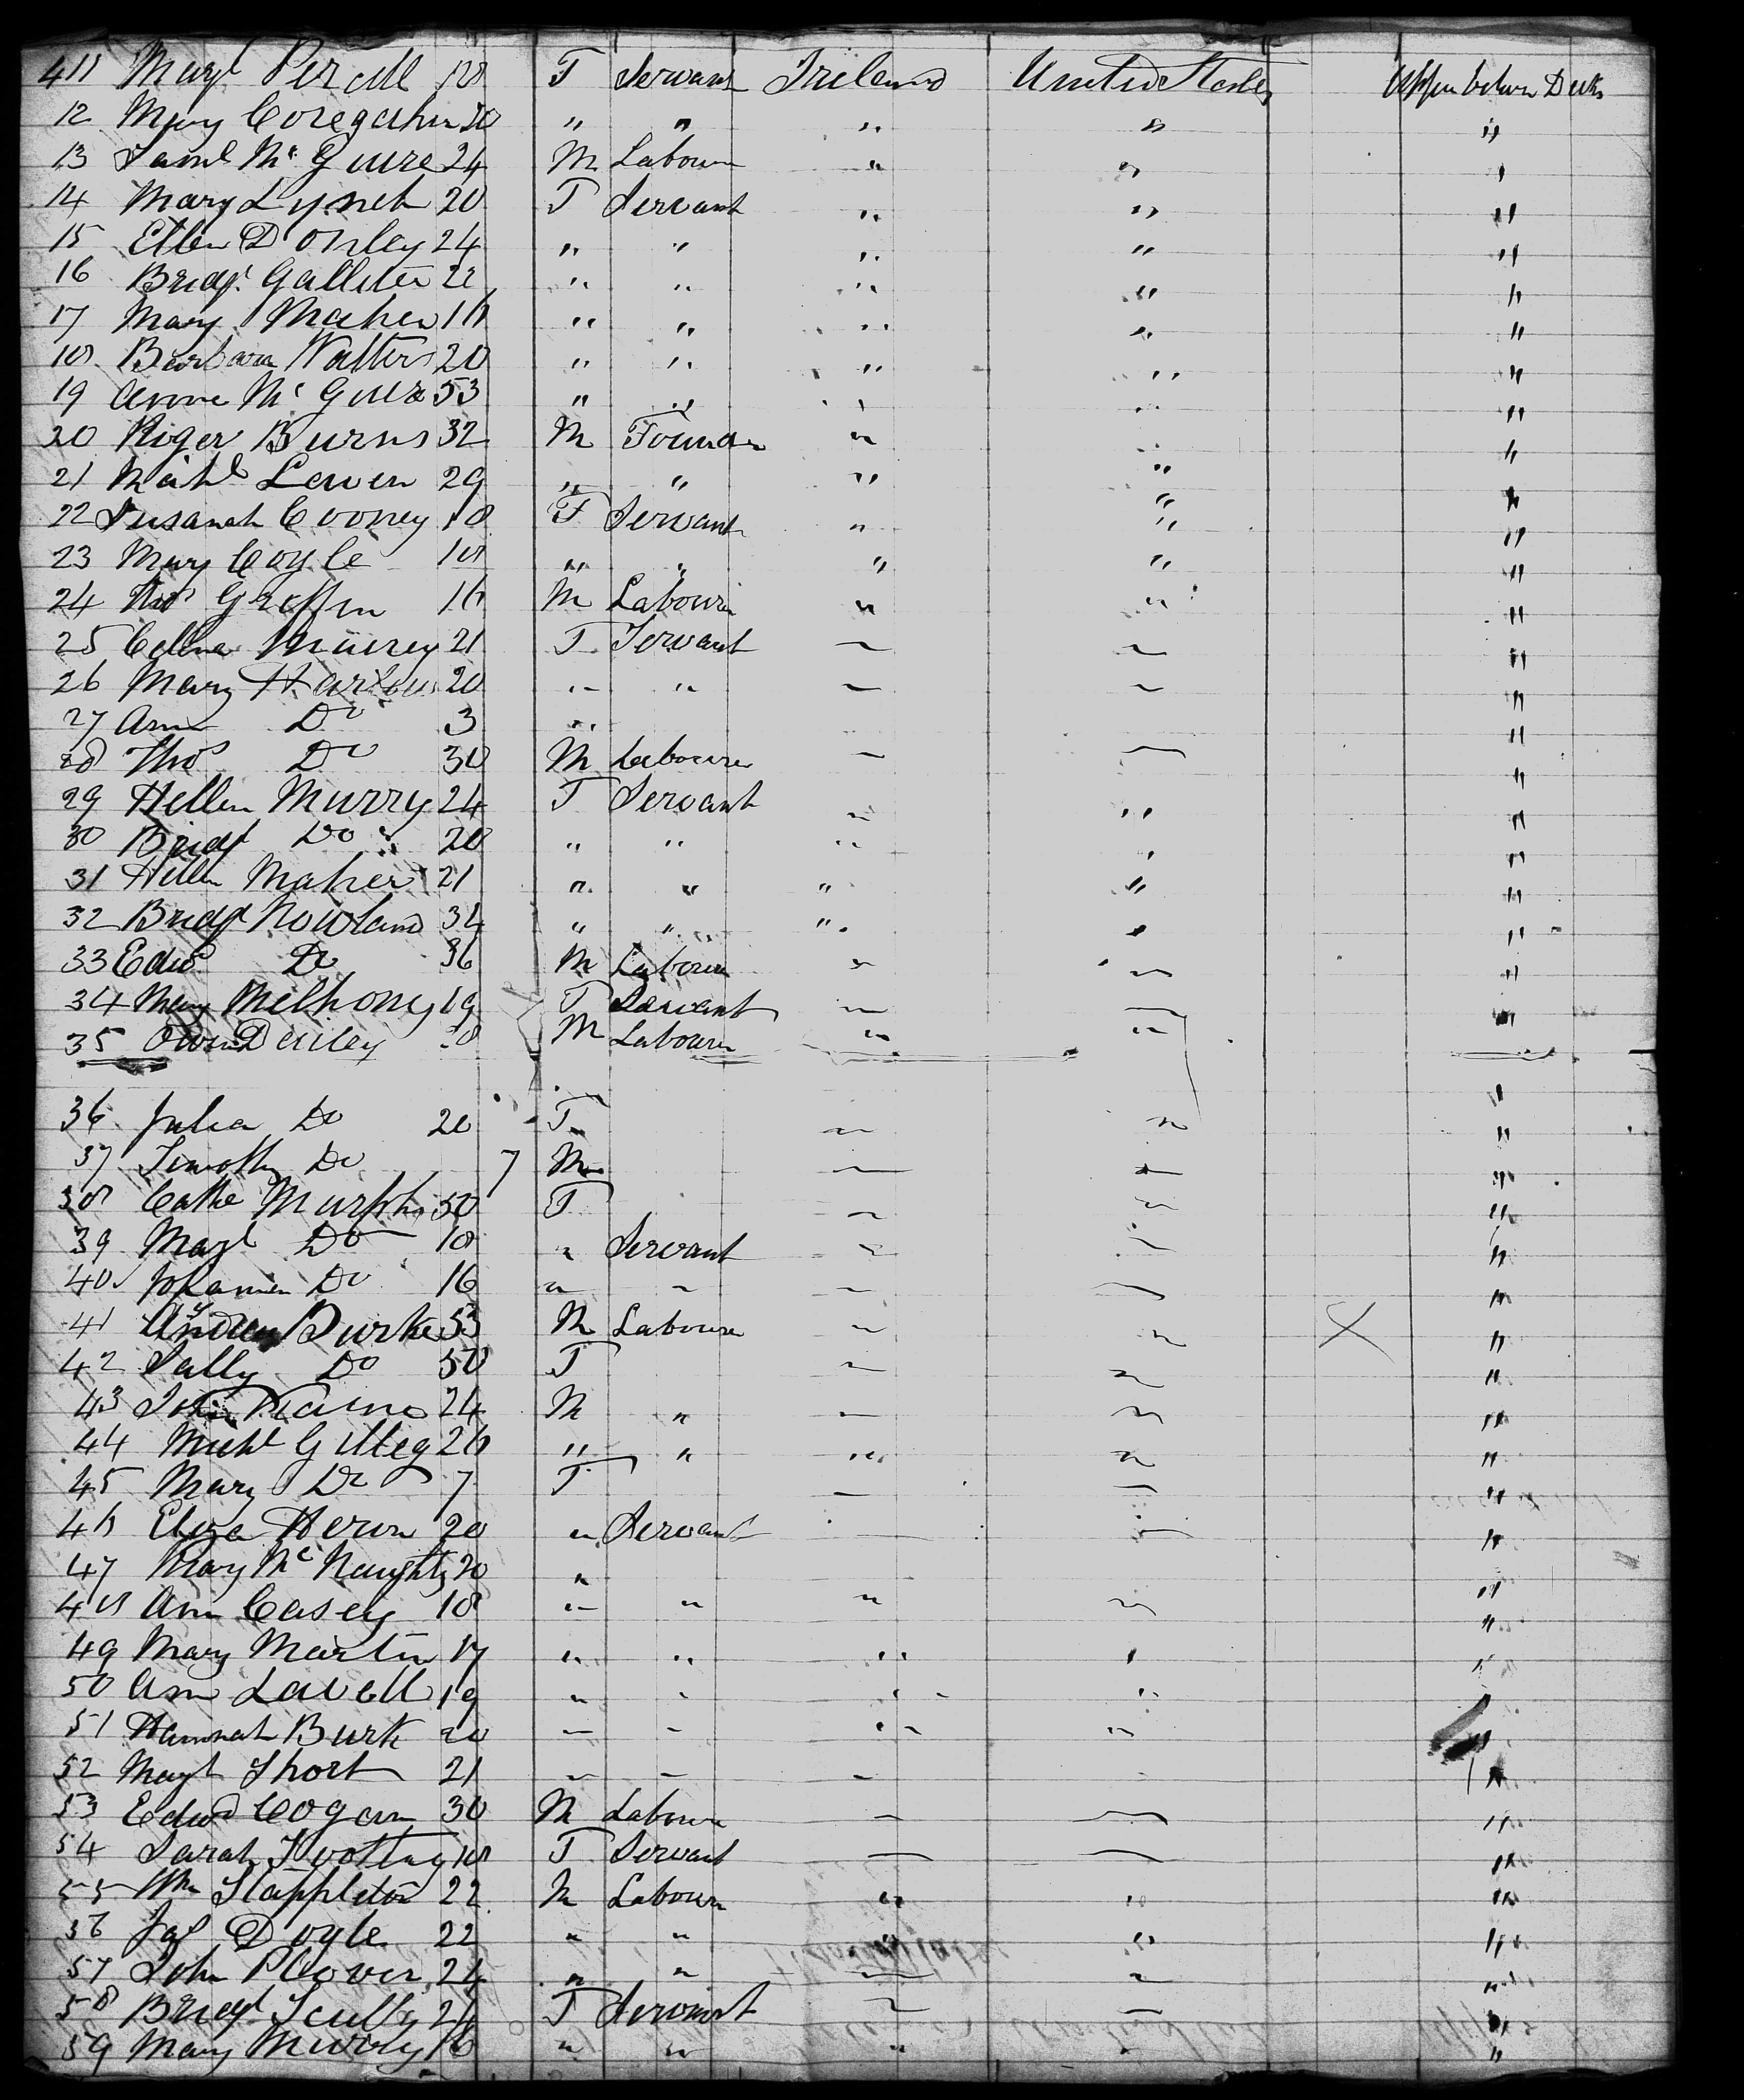 411 Margt Percell 18 F Servant Ireland United States Upper between Decks
12 Mary 20 " " " " "
13 Saml Mc Guire 24 M Labourer " " "
14 Mary Lynch 20 F Servant " " "
15 Ellen Donley 24 " " " " "
16 Bridgt Galliter 22 " " " " "
17 Mary Maher 16 " " " " "
18 Barbara Walters 20 " " " " "
19 Anne Mc Guire 53 " " " " "
20 Roger Burns 32 M Founder " " "
21 Michl Lewen 29 " " " " "
22 Susanah Cooney 18 F Servant " " "
23 Mary Coyle 18 " " " " "
24 Thos Griffin 16 M Labourer " " "
25 Murrey 21 F Servant " " "
26 Mary 20 " " " " "
27 Ann Do 3 " "
28 Thos Do 30 M Labourer " " "
29 Hellen Murry 24 F Servant " " "
30 Bridgt Do 20 " " " " "
31 Hellen Maher 21 " " " " "
32 Bridgt Nowland 34 " " " " "
33 Edwd Do 36 M Labourer " " "
34 Mary Melhoney 19 F Servant " " "
35 Owen Denley M Labourer " "
36 Julia Do 20 F " " "
37 Timothy Do 7 M " " "
38 Cathe Murphy 50 F " " "
39 Magt Do 18 " Servant " " "
40 Johanna Do 16 " " " " "
41 Andrew Burke 53 M Labourer " " X "
42 Sally Do 50 F " " "
43 John 24 M " " " "
44 Michl Gilleg 26 " " " " "
45 Mary Do 7 F " " "
46 Eliza Heron 20 " Servant " " "
47 Mary Mc Naughty 20 " "
48 Ann Casey 18 " " " " "
49 Mary Martin 17 " " " " "
50 Ann Lavell 19 " " " " "
51 Hannah Burk 20 " " " " "
52 Magt Short 21 " " " "
53 Edwd Cogan 30 M Labourer " " "
54 Sarah 18 F Servant " " "
55 Wm Stappleton 22 M Labourer " " "
56 Jas Doyle 22 " " " " "
57 John Plover 24 " " " " "
58 Bridgt Scully 24 F Servant " " "
59 Mary Murry 16 " " " " "